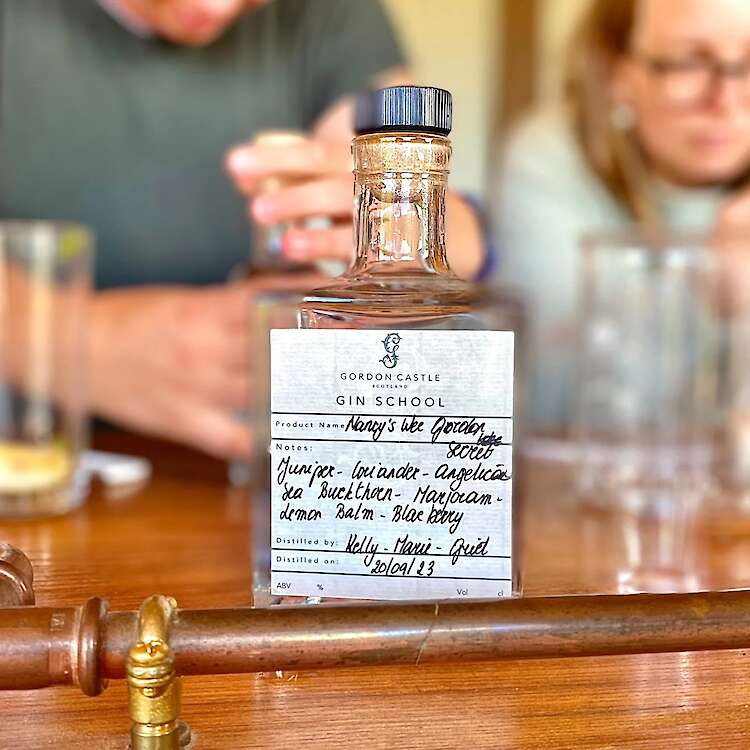 GORDON CASTLE
SCOTLAND
GIN SCHOOL
Product Name Nancy's Wee Gordon
Secret
Notes:
Juniper - Coriander - Angelica
Sea Buckthorn - Marjoram -
Lemon Balm - Blaeberry
Distilled by: Kelly - Marie -
Distilled on: 20/09/23
ABV % Vol cl